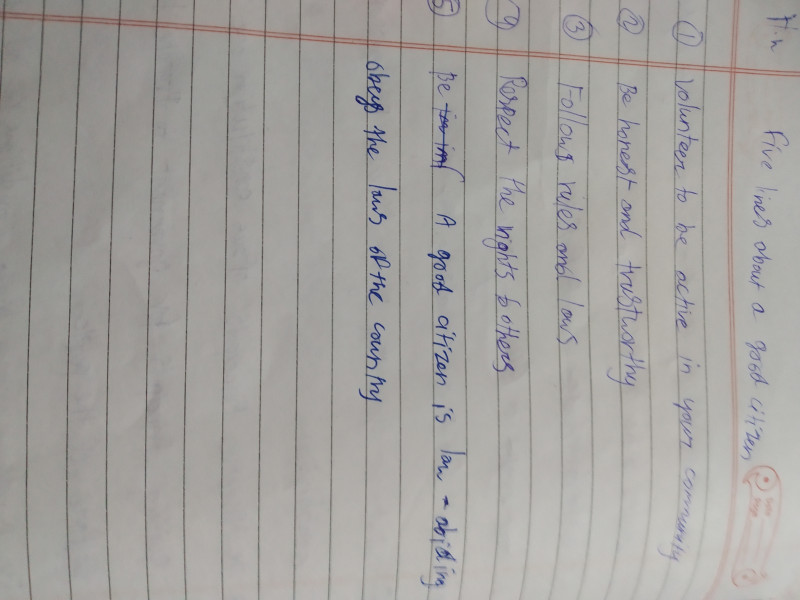 H.w
Five lines about a good citizen,
① volunteer to be active in your community
② Be honest and trustworthy
③ Follows rules and laws
④ Respect the rights & others
⑤ Be A good citizen is law - abiding
obeys the laws of the country